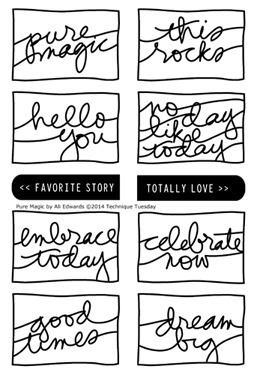 pure
magic
this
rocks
hello
you
no day
like
today
<< FAVORITE STORY
TOTALLY LOVE >>
Pure Magic by Ali Edwards ©2014 Technique Tuesday
embrace
today
celebrate
now
good
times
dream
big